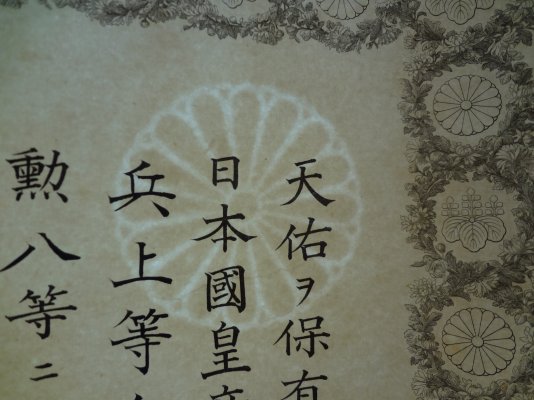 天佑ヲ保有
日本國皇
兵上等
勲八等ニ